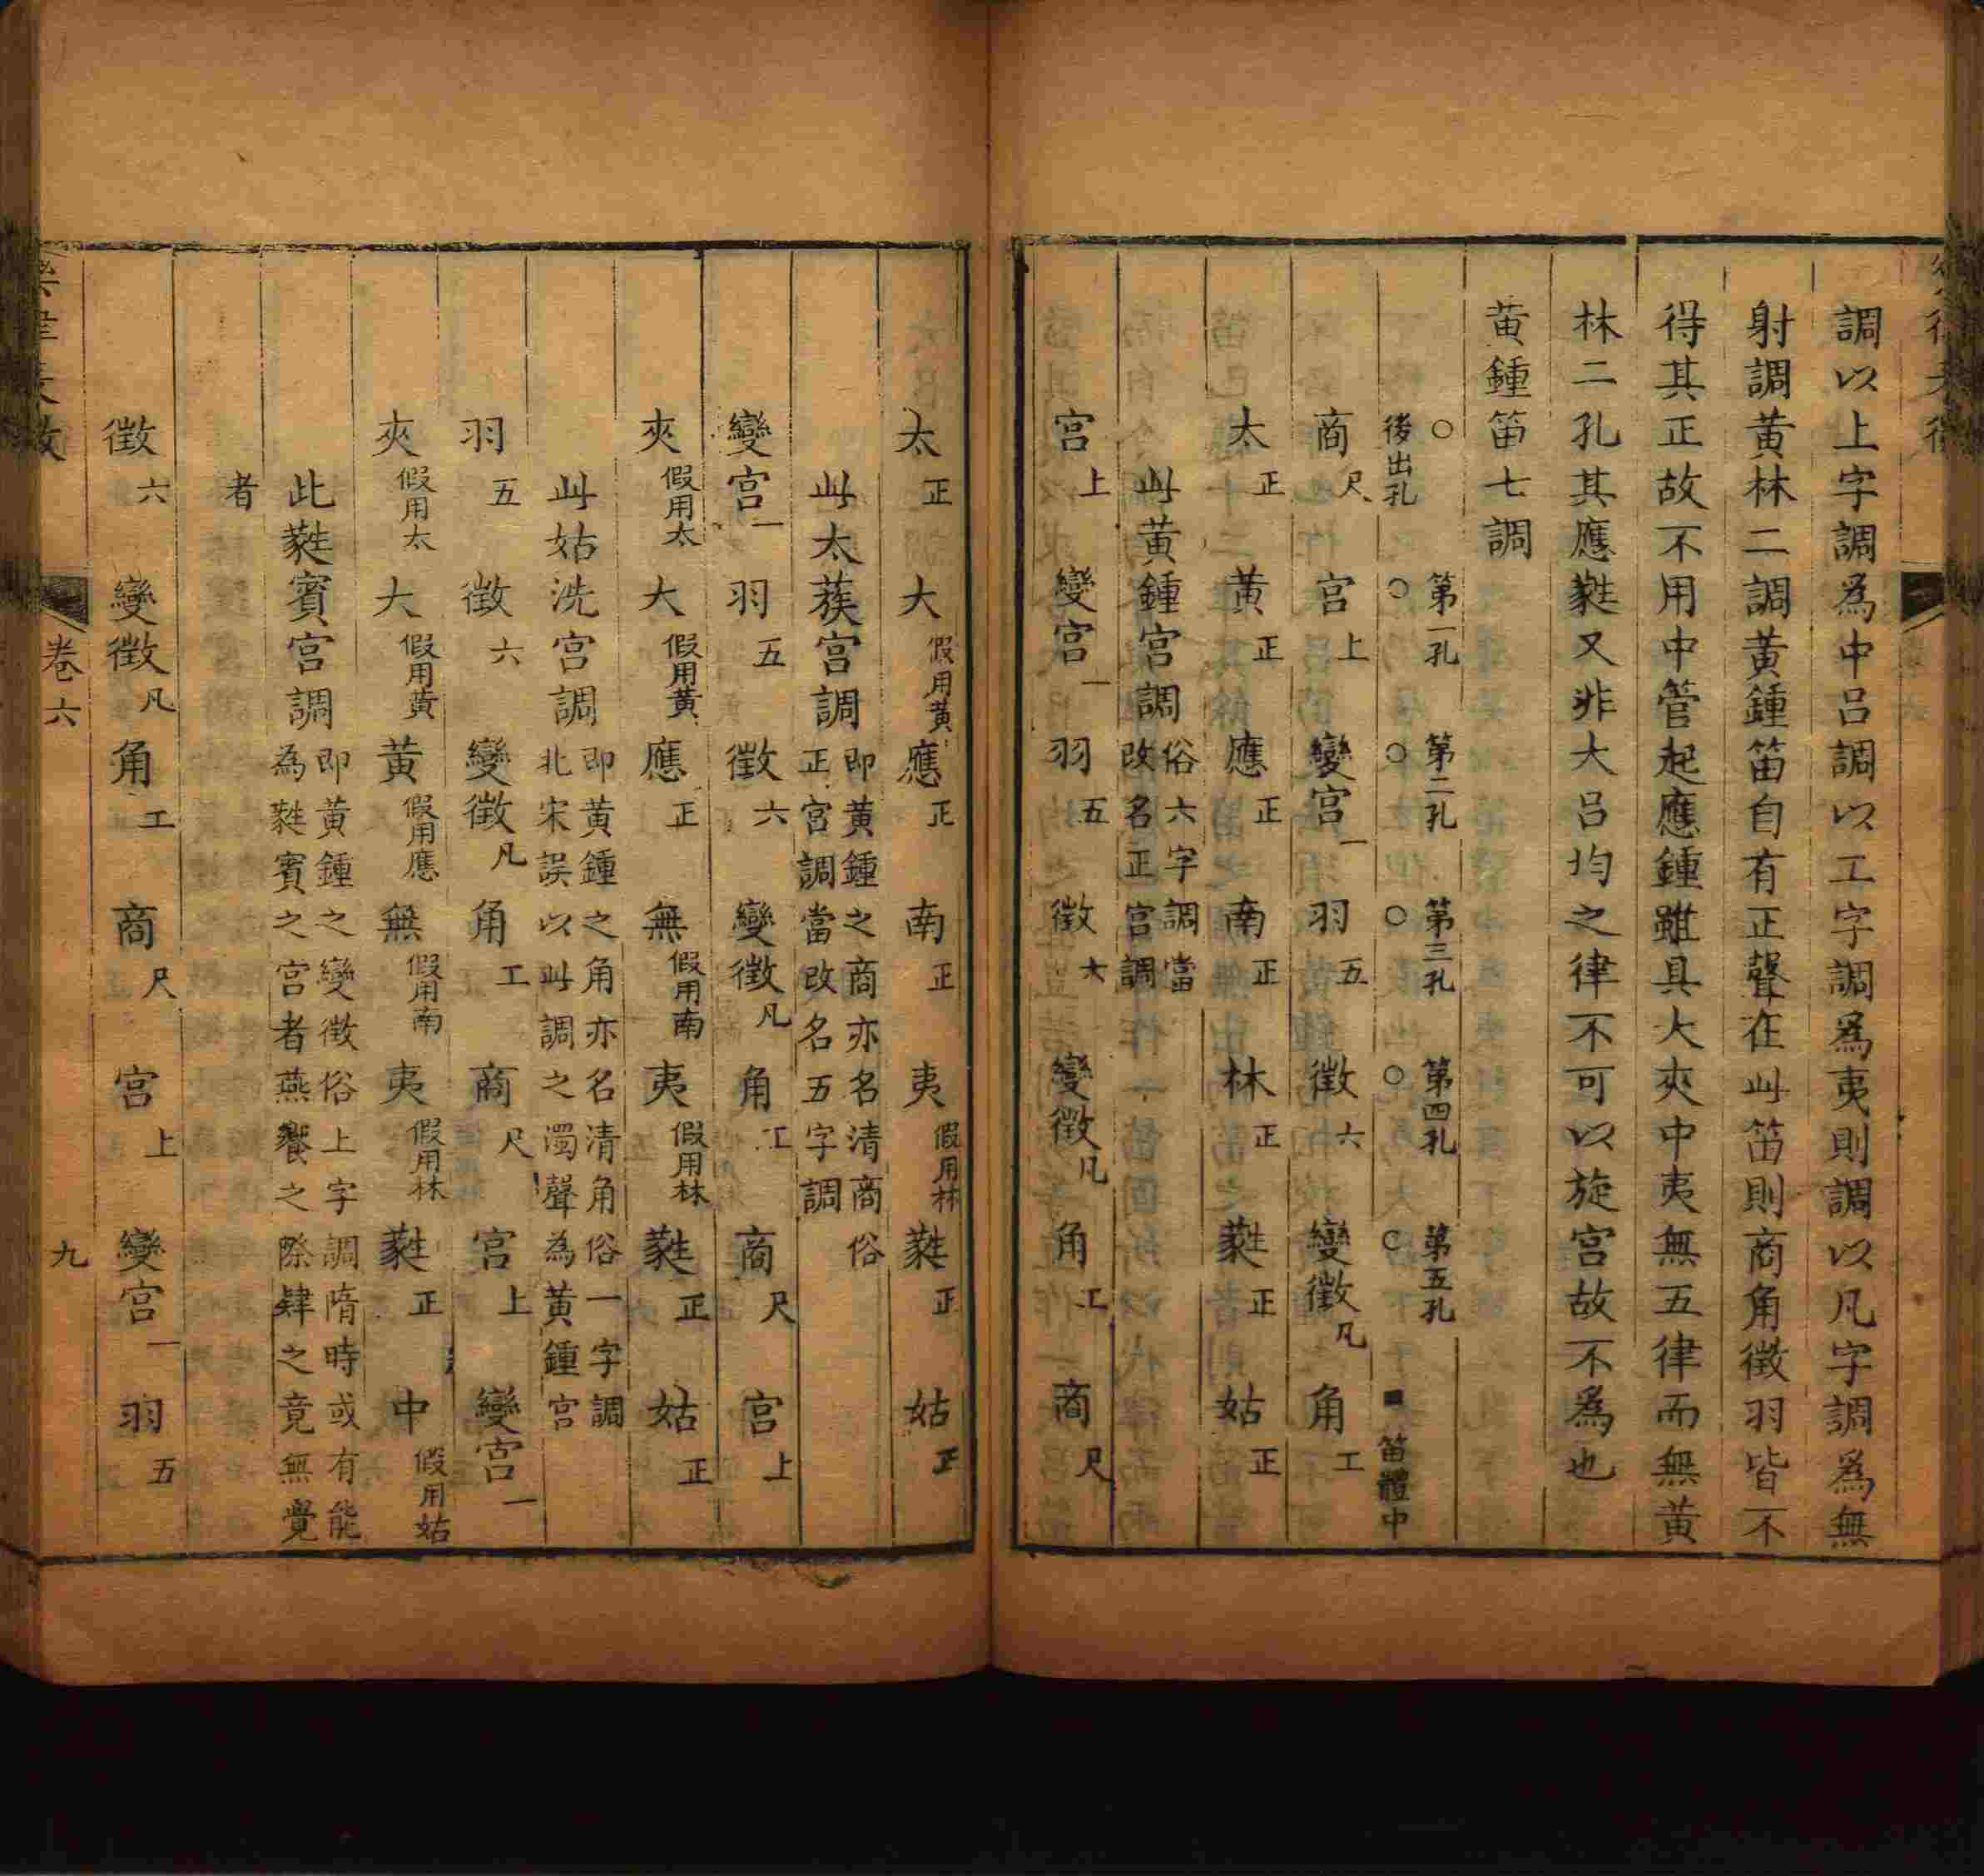 調以上字調爲中呂調以工字調爲夷則調以凡字調爲無
射調黃林二調黃鍾笛自有正聲在此笛則商角徵羽皆不
得其正故不用中管起應鍾雖具大夾中夷無五律而無黃
林二孔其應蕤又非大呂均之律不可以旋宮故不爲也
黃鍾笛七調
○後出孔 ○第一孔 ○第二孔 ○第三孔 ○第四孔 ○第五孔 ■笛體中
商尺 宮上 變宮一 羽五 徵六 變徵凡 角工
太正 黃正 應正 南正 林正 蕤正 姑正
此黃鍾宮調俗六字調當
改名正宮調
宮上 變宮一 羽五 徵六 變徵凡 角工 商尺
太正 大假用黃 應正 南正 夷假用林 蕤正 姑正
此太蔟宮調即黃鍾之商亦名清商俗
正宮調當改名五字調
變宮一 羽五 徵六 變徵凡 角工 商尺 宮上
夾假用太 大假用黃 應正 無假用南 夷假用林 蕤正 姑正
此姑洗宮調即黃鍾之角亦名清角俗一字調
北宋誤以此調之濁聲為黃鍾宮
羽五 徵六 變徵凡 角工 商尺 宮上 變宮一
夾假用太 大假用黃 黃假用應 無假用南 夷假用林 蕤正 中假用姑
此蕤賓宮調即黃鍾之變徵俗上字調隋時或有能
為蕤賓之宮者燕饗之際肆之竟無覺
者
徵六 變徵凡 角工 商尺 宮上 變宮一 羽五
卷六
九